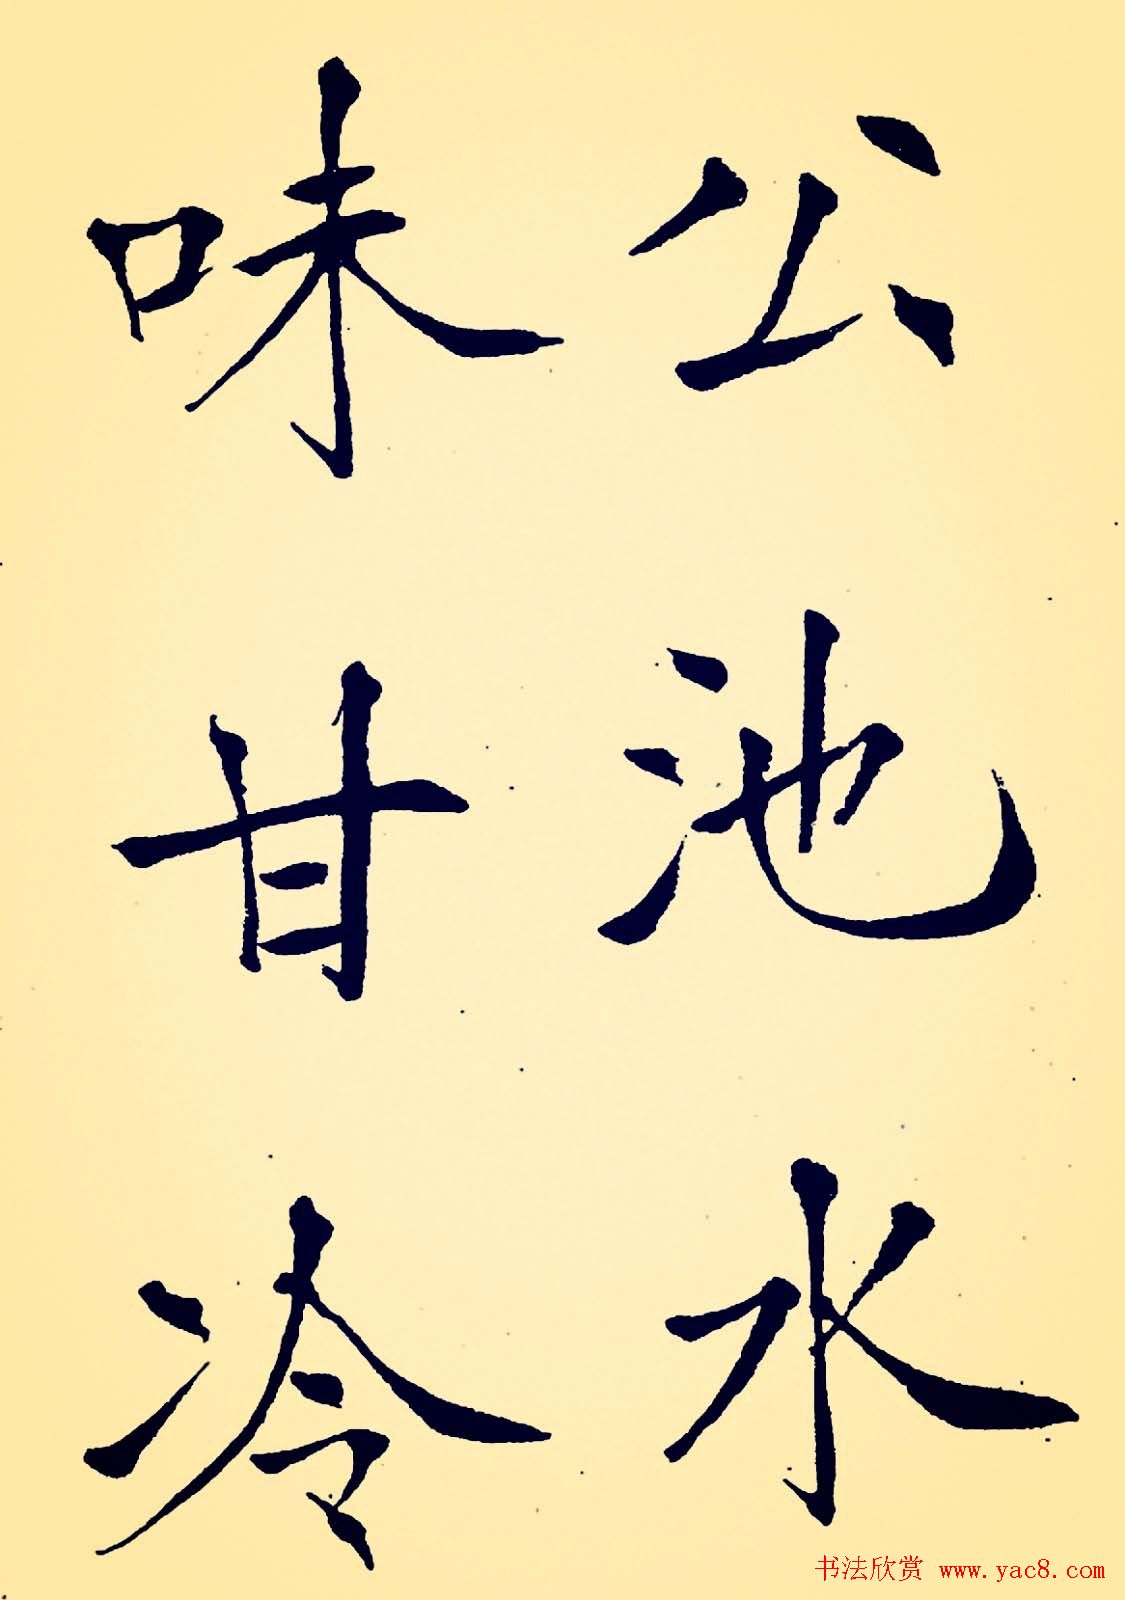 公池水
味甘冷
书法欣赏 www.yac8.com